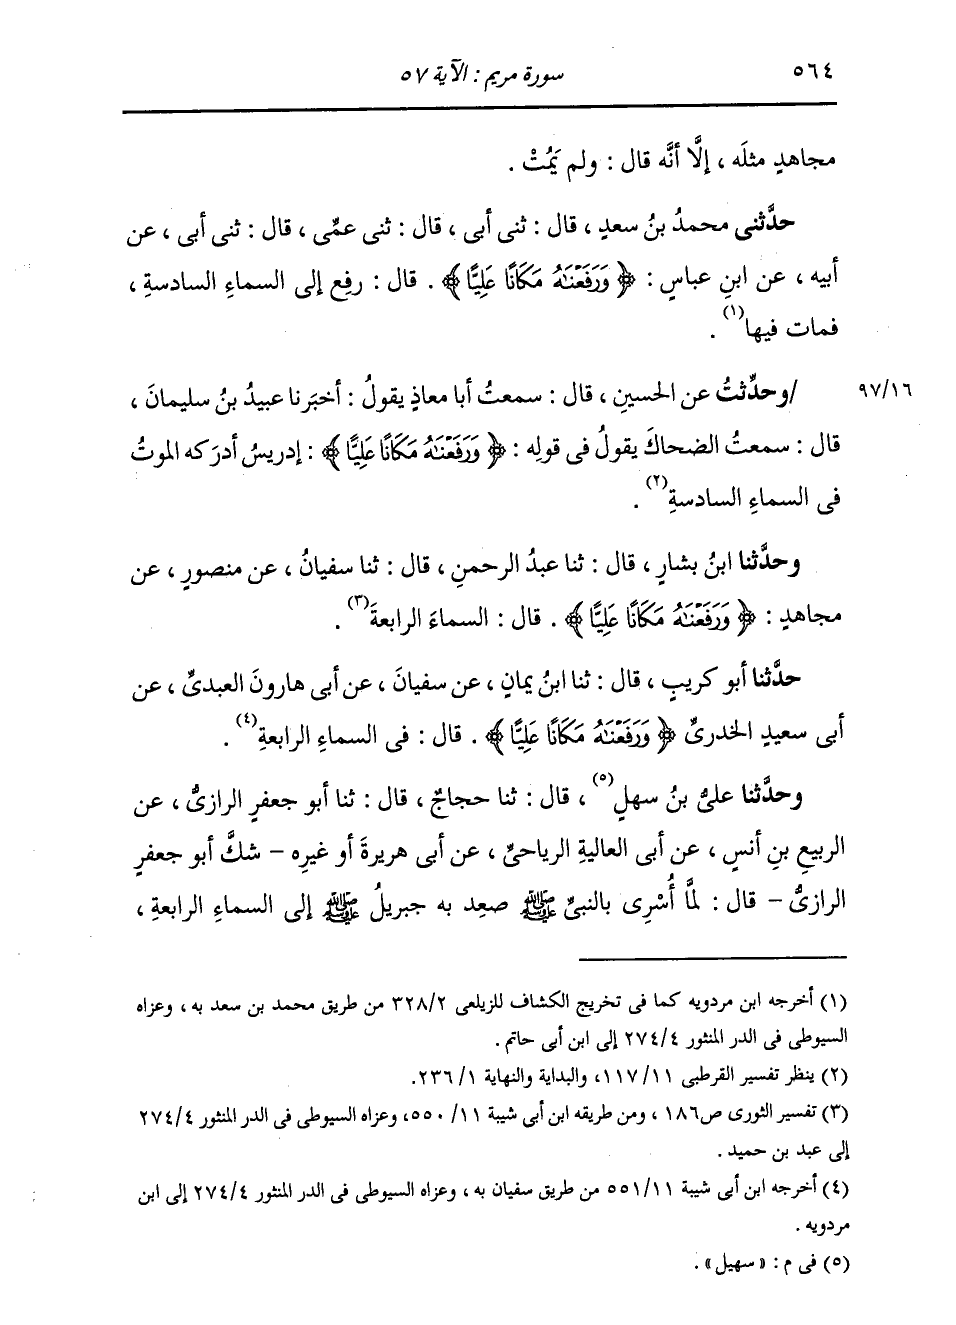 ٥٦٤
سورة مريم : الآية ٥٧
مجاهدٍ مثلَه ، إلَّا أنَّه قال : ولم يَمُتْ .
حدَّثنى محمدُ بنُ سعدٍ ، قال : ثنى أبى ، قال : ثنى عمِّى ، قال : ثنى أبى ، عن
أبيه ، عن ابنِ عباسٍ : ﴿ وَرَفَعْنَٰهُ مَكَانًا عَلِيًّا ﴾ . قال : رفِع إلى السماءِ السادسةِ ،
فمات فيها(١) .
٩٧/١٦
/وحدِّثتُ عن الحسينِ ، قال : سمعتُ أبا معاذٍ يقولُ : أخبَرنا عبيدُ بنُ سليمانَ ،
قال : سمعتُ الضحاكَ يقولُ فى قولِه : ﴿ وَرَفَعْنَٰهُ مَكَانًا عَلِيًّا ﴾ : إدريسُ أدرَكه الموتُ
فى السماءِ السادسةِ(٢) .
وحدَّثنا ابنُ بشارٍ ، قال : ثنا عبدُ الرحمنِ ، قال : ثنا سفيانُ ، عن منصورٍ ، عن
مجاهدٍ : ﴿ وَرَفَعْنَٰهُ مَكَانًا عَلِيًّا ﴾ . قال : السماءَ الرابعةَ(٣) .
حدَّثنا أبو كريبٍ ، قال : ثنا ابنُ يمانٍ ، عن سفيانَ ، عن أبى هارونَ العبدىِّ ، عن
أبى سعيدٍ الخدرىِّ ﴿ وَرَفَعْنَٰهُ مَكَانًا عَلِيًّا ﴾ . قال : فى السماءِ الرابعةِ(٤) .
وحدَّثنا علىُّ بنُ سهلٍ(٥) ، قال : ثنا حجاجٌ ، قال : ثنا أبو جعفرٍ الرازىُّ ، عن
الربيعِ بنِ أنسٍ ، عن أبى العاليةِ الرياحىِّ ، عن أبى هريرةَ أو غيرِه – شكَّ أبو جعفرٍ
الرازىُّ – قال : لمَّا أُسْرِى بالنبىِّ ﷺ صعِد به جبريلُ ﷺ إلى السماءِ الرابعةِ ،
(١) أخرجه ابن مردويه كما فى تخريج الكشاف للزيلعى ٣٢٨/٢ من طريق محمد بن سعد به ، وعزاه
السيوطى فى الدر المنثور ٢٧٤/٤ إلى ابن أبى حاتم .
(٢) ينظر تفسير القرطبى ١١٧/١١، والبداية والنهاية ١/ ٢٣٦.
(٣) تفسير الثورى ص١٨٦ ، ومن طريقه ابن أبى شيبة ١١/ ٥٥٠، وعزاه السيوطى فى الدر المنثور ٢٧٤/٤
إلى عبد بن حميد .
(٤) أخرجه ابن أبى شيبة ٥٥١/١١ من طريق سفيان به ، وعزاه السيوطى فى الدر المنثور ٢٧٤/٤ إلى ابن
مردويه .
(٥) فى م : « سهيل» .